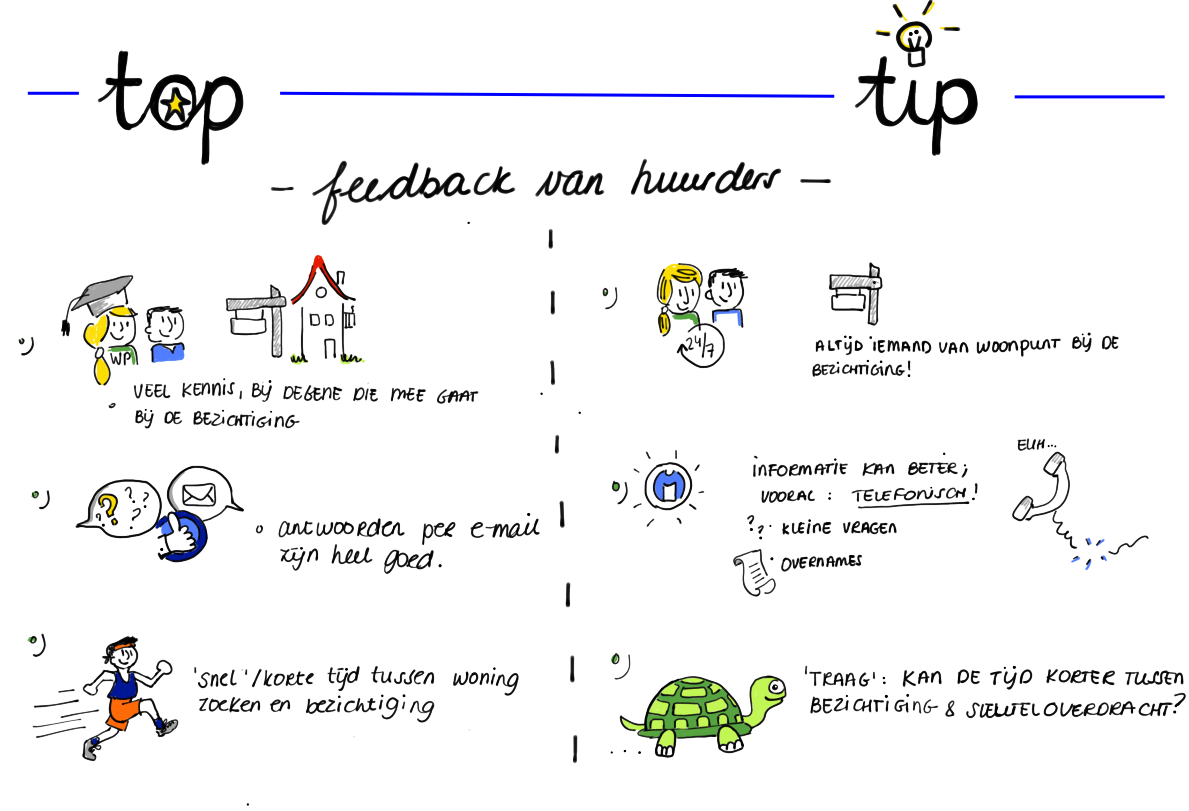 top
tip
- feedback van huurders -
WP
VEEL KENNIS, BIJ DEGENE DIE MEE GAAT
BIJ DE BEZICHTIGING
24/7
ALTIJD IEMAND VAN WOONPUNT BIJ DE
BEZICHTIGING!
? ? ? ? ?
antwoorden per e-mail
zijn heel goed.
EUH...
INFORMATIE KAN BETER;
VOORAL : TELEFONISCH!
?? · KLEINE VRAGEN
· OVERNAMES
'snel'/korte tijd tussen woning
zoeken en bezichtiging
'TRAAG': KAN DE TIJD KORTER TUSSEN
BEZICHTIGING & SLEUTELOVERDRACHT?